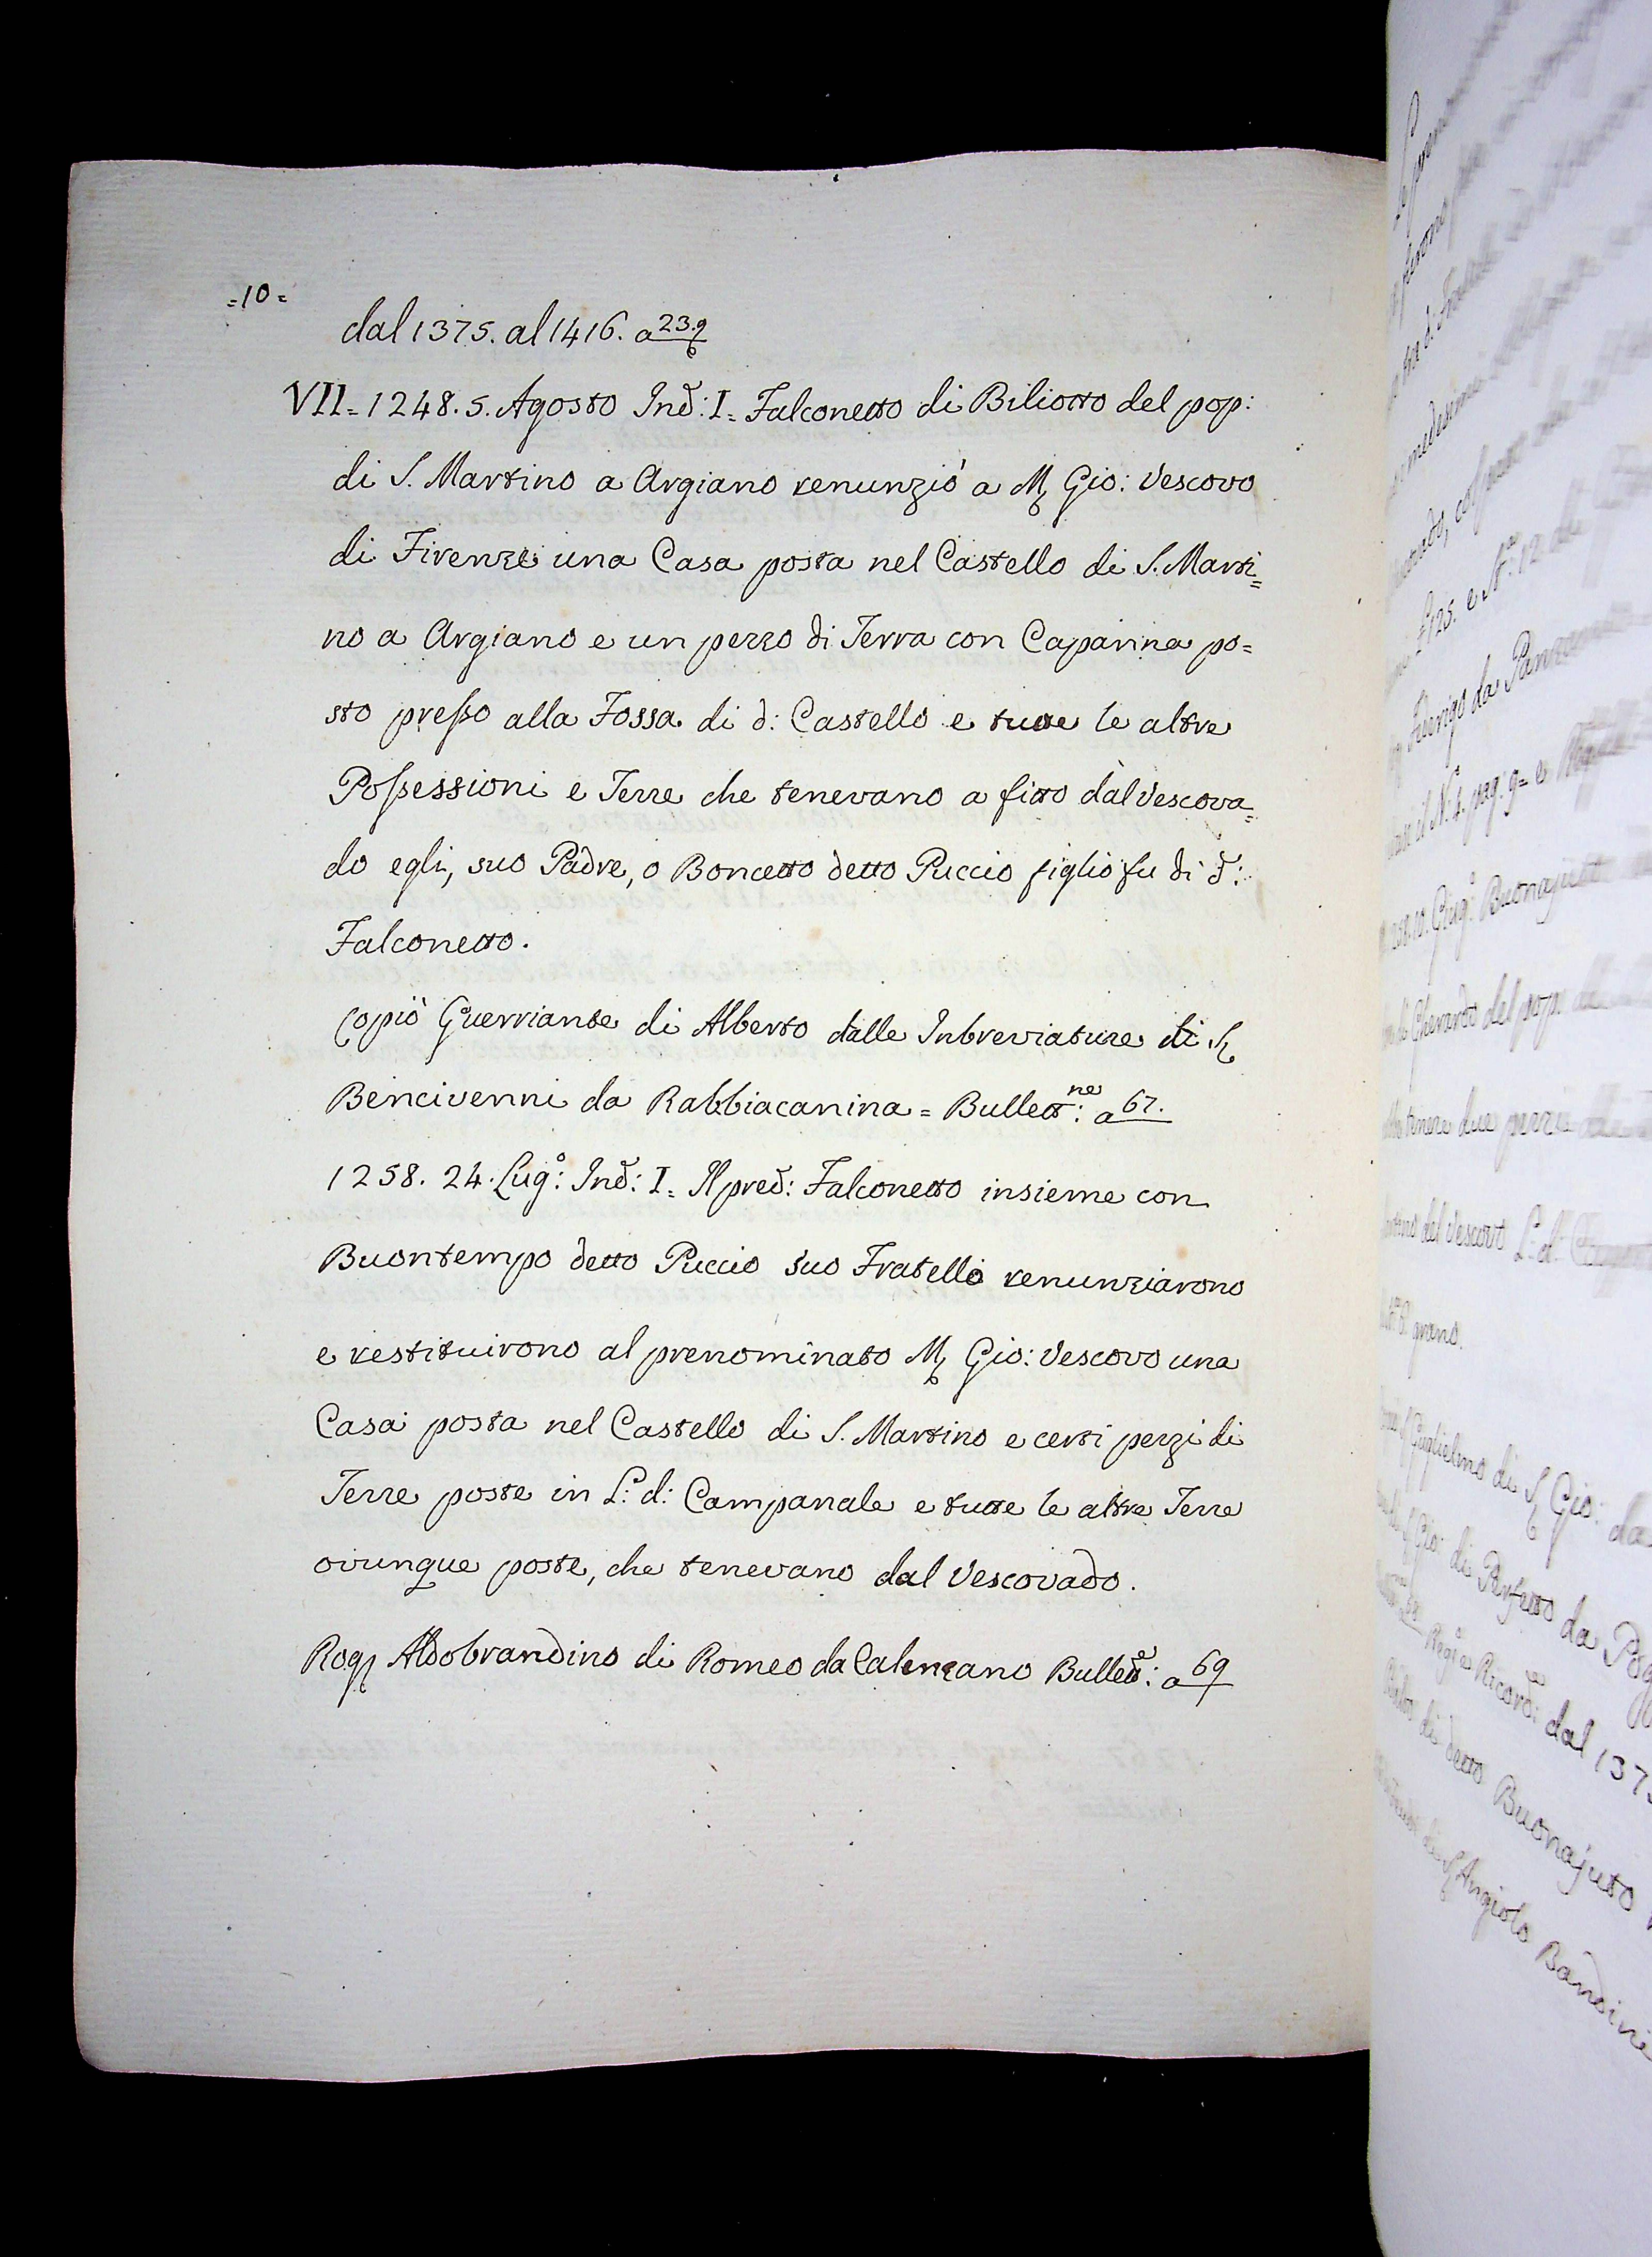 =10=
dal 1375. al 1416. a 23.
VII= 1248. 5. Agosto Ind: I= Falconetto di Biliotto del pop:
di S. Martino a Argiano renunziò a M. Gio: Vescovo
di Firenze una Casa posta nel Castello di S. Marti=
no a Argiano e un pezzo di Terra con Capanna po=
sto presso alla Fossa di d: Castello e tutte le altre
Possessioni e Terre che tenevano a fitto dal Vescova=
do egli, suo Padre, o Boncetto detto Puccio figlio fu di d:
Falconetto.
Copiò Guerriante di Alberto dalle Inbreviature di S.
Bencivenni da Rabbiacanina = Bullett:ne a 67.
1258. 24. Lug:o Ind: I= Il pred: Falconetto insieme con
Buontempo detto Puccio suo Fratello renunziarono
e restituirono al prenominato M. Gio: Vescovo una
Casa posta nel Castello di S. Martino e certi pezzi di
Terre poste in L: d: Campanale e tutte le altre Terre
ovunque poste, che tenevano dal Vescovado.
Rog. Aldobrandino di Romeo da Calenzano Bullett: a 69
Buonajuto
Gherardo del pop:
due pezzi
del Vescovo L: d:
grano.
Guglielmo di S. Gio: da
Gio: di Perfetto da
Ricord: dal
di detto Buonajuto
Angiolo Bandini